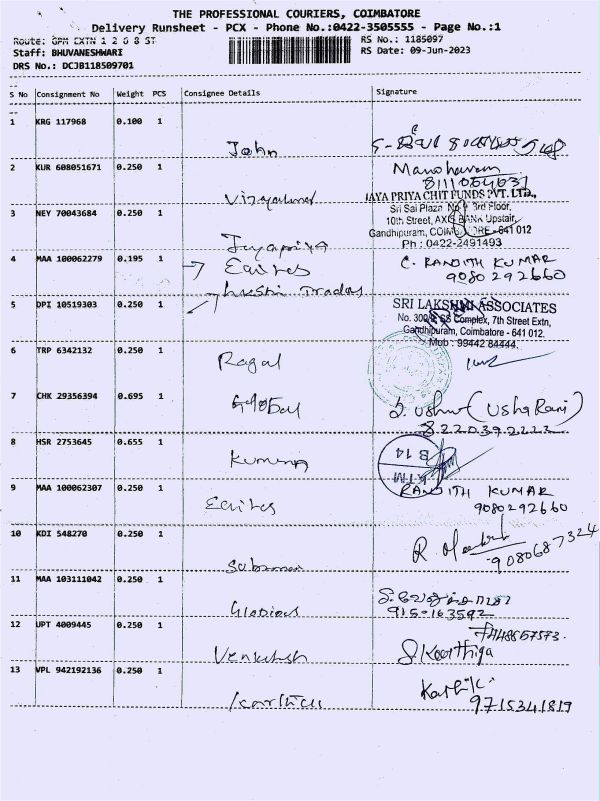 THE PROFESSIONAL COURIERS, COIMBATORE
Delivery Runsheet - PCX - Phone No.:0422-3505555 - Page No.:1
Route: GPM EXTN 1 2 6 8 ST
RS No.: 1185097
Staff: BHUVANESHWARI
RS Date: 09-Jun-2023
DRS No.: DCJB118509701
S No Consignment No Weight PCS Consignee Details Signature
1 KRG 117968 0.100 1
John
2 KUR 608051671 0.250 1
Manoharan
JAYA PRIYA CHIT FUNDS PVT. LTD.,
3 NEY 70043684 0.250 1
Sri Sai Plaza No 3rd Floor,
10th Street, AXIS BANK Upstair,
Gandhipuram, COIMBATORE - 641 012
Ph : 0422-2491493
Jayapriya
4 MAA 100062279 0.195 1
Equites
C. RANDITH KUMAR
9080292660
Traders
5 DPI 10519303 0.250 1
SRI LAKSHMI ASSOCIATES
No. 300/3, SS Complex, 7th Street Extn,
Gandhipuram, Coimbatore - 641 012.
Mob : 99442 84444.
6 TRP 6342132 0.250 1
Ragal
7 CHK 29356394 0.695 1
Global
(Usha Rani)
8220392223
8 HSR 2753645 0.655 1
KTM
B 14
Kumaran
9 MAA 100062307 0.250 1
Equites
RANDITH KUMAR
9080292660
10 KDI 548270 0.250 1
9080687324
11 MAA 103111042 0.250 1
Glorious
12 UPT 4009445 0.250 1
Venkatesh
S. Karthiga
13 VPL 942192136 0.250 1
Karthik
Karthik
9715341819